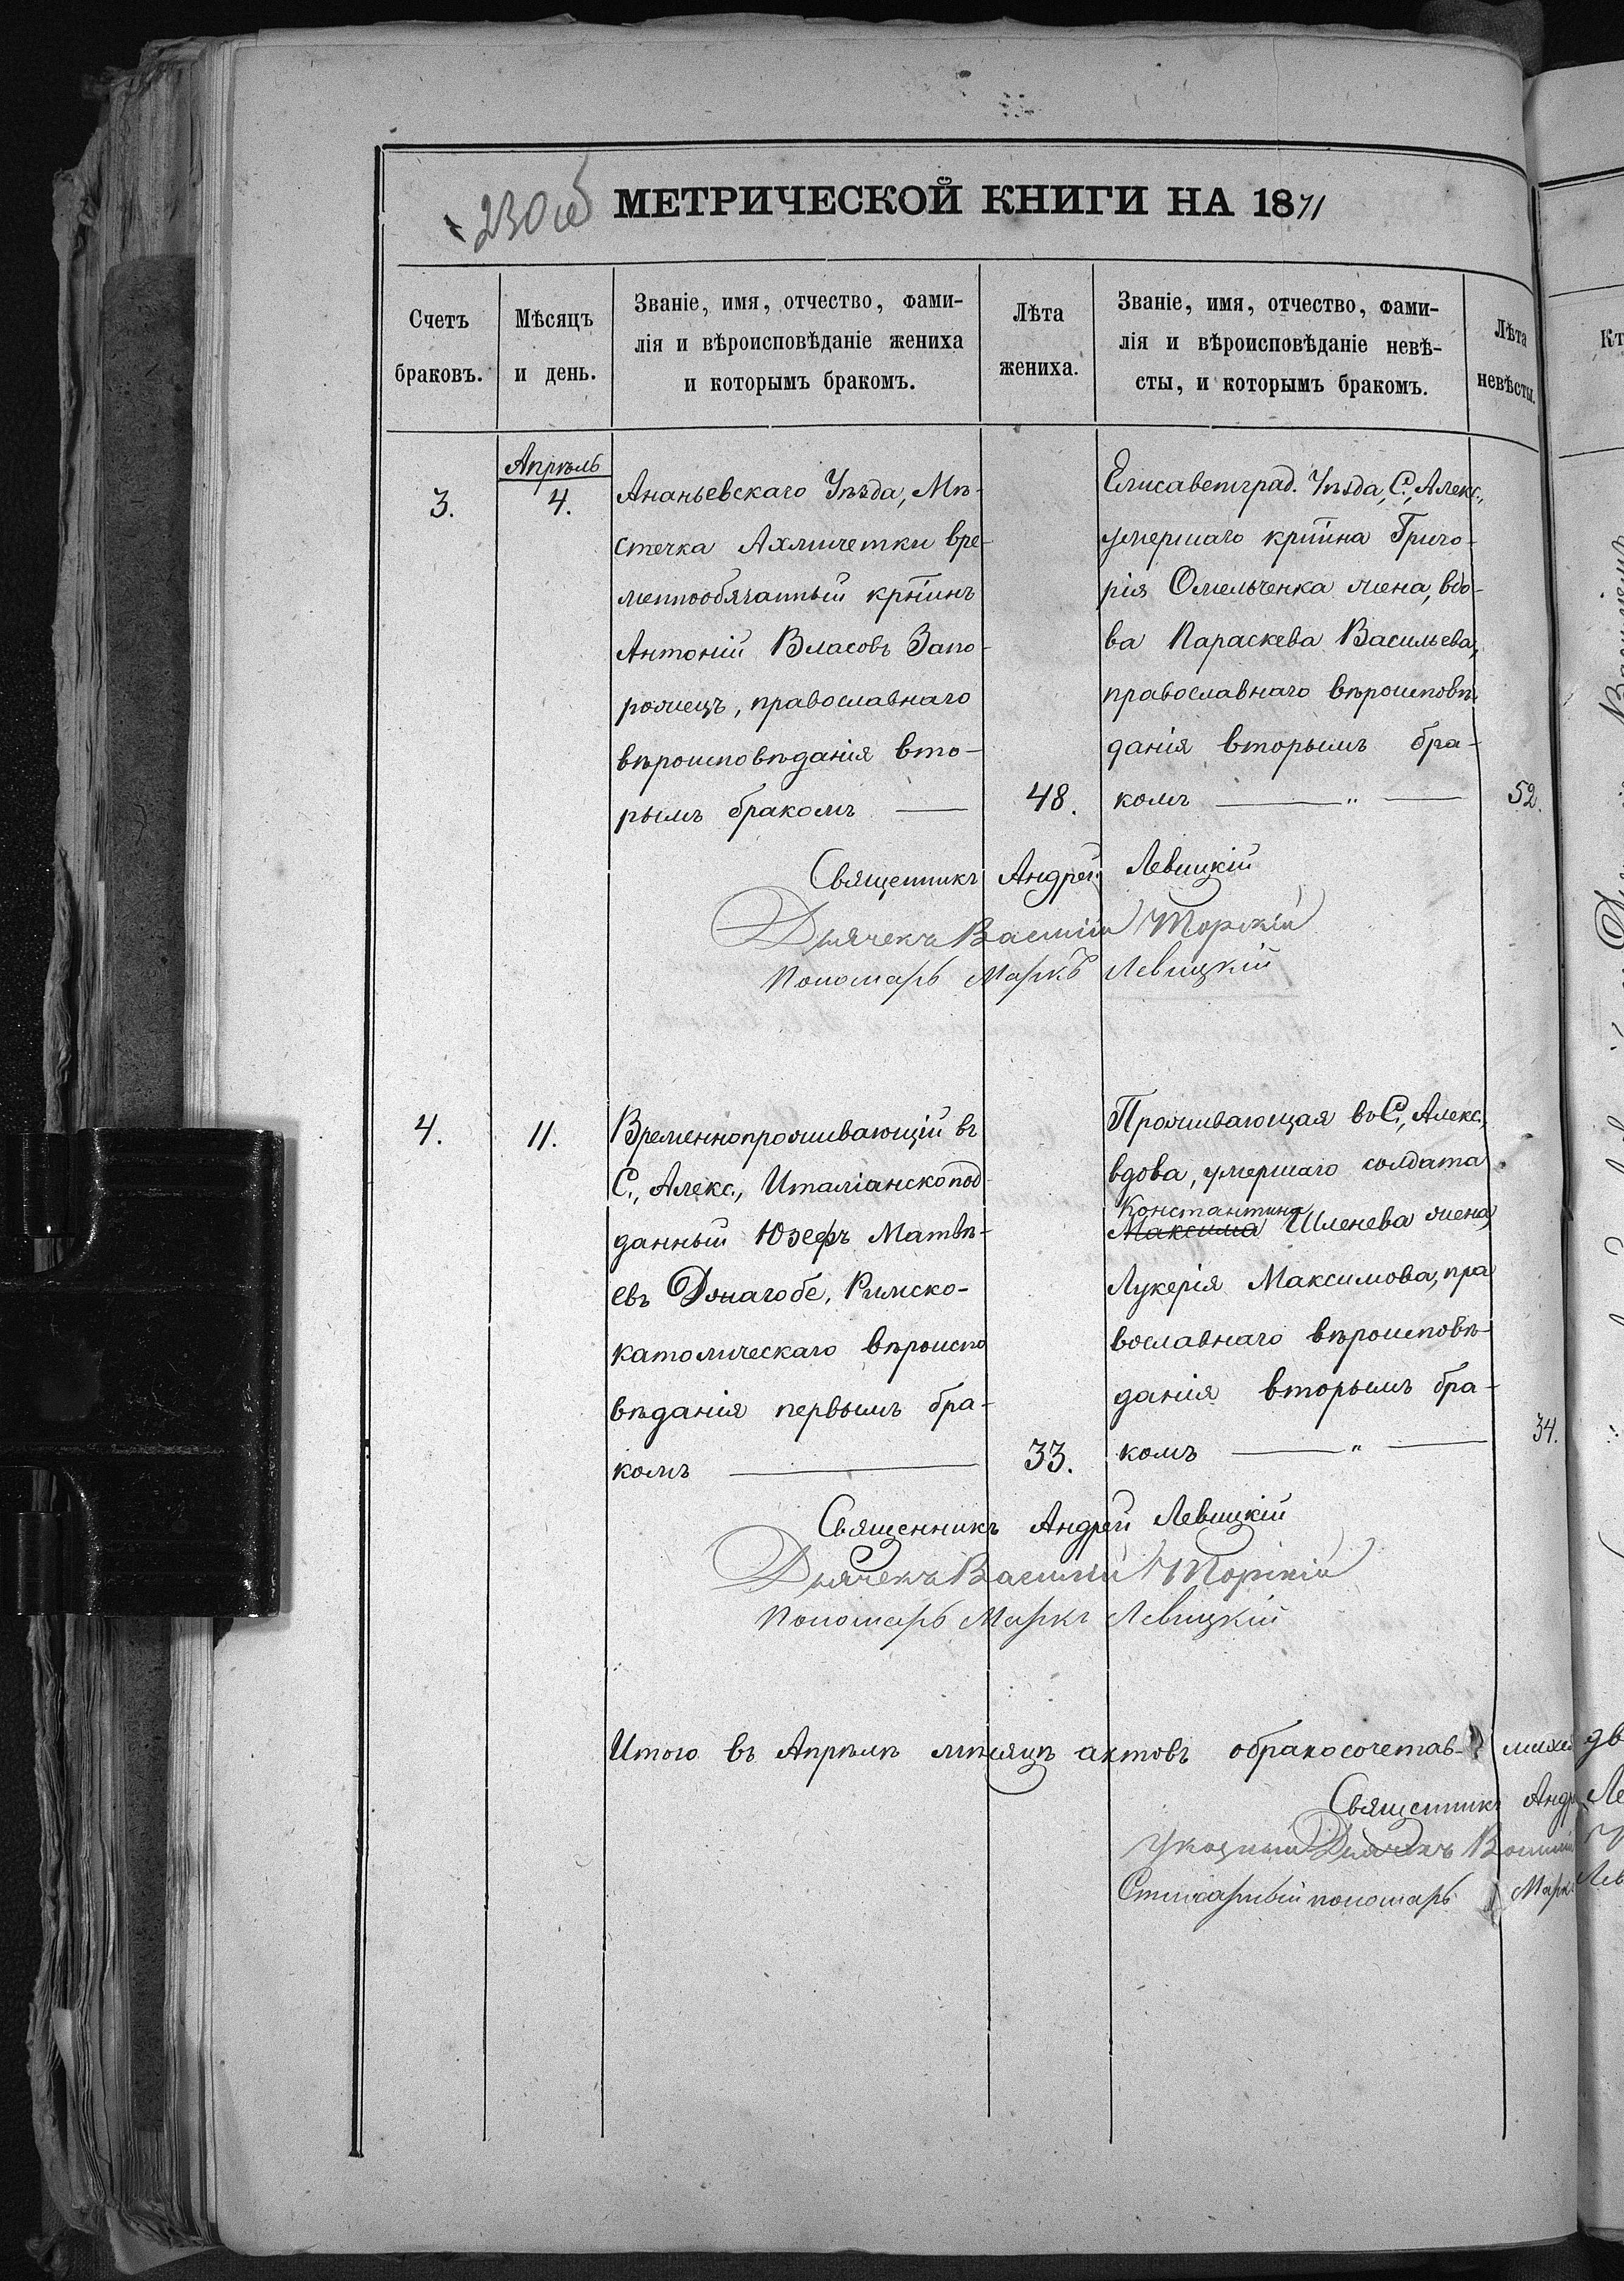 230 об
МЕТРИЧЕСКОЙ КНИГИ НА 1871
Счетъ
браковъ.
Мѣсяцъ
и день.
Званіе, имя, отчество, фами-
лія и вѣроисповѣданіе жениха
и которымъ бракомъ.
Лѣта
жениха.
Званіе, имя, отчество, фами-
лія и вѣроисповѣданіе невѣ-
сты, и которымъ бракомъ.
Лѣта
невѣсты.
3.
Апрѣль
4.
Ананьевскаго Уѣзда, Мѣ-
стечка Ахмичетки вре-
меннообязанный крѣинъ
Антоній Власовъ Запо-
рожецъ, православнаго
вѣроисповѣданія вто-
рымъ бракомъ —
48.
Елисаветград. Уѣзда, С., Алекс.,
умершаго крѣина Григо-
рія Омельченка жена, вдо-
ва Параскева Васильева,
православнаго вѣроисповѣ-
данія вторымъ бра-
комъ — „ —
52.
Священникъ Андрей Левицкій
Дьячекъ Василій Торскій
Пономарь Маркъ Левицкій
4.
11.
Временнопроживающій въ
С., Алекс., Италіанскопод
данный Юзефъ Матвѣ-
евъ Джагобе, Римско-
католическаго вѣроиспо
вѣданія первымъ бра-
комъ —
33.
Проживающая въ С., Алекс.,
вдова, умершаго солдата
Константина
Максима Шленева жена,
Лукерія Максимова, пра
вославнаго вѣроисповѣ-
данія вторымъ бра-
комъ — „ —
34.
Священникъ Андрей Левицкій
Дьячекъ Василій Торскій
Пономарь Маркъ Левицкій
Итого въ Апрѣлѣ мѣсяцѣ актовъ обракосочетав- дв
Священникъ Андр Ле
Указный Дьячекъ Василій
Стихарный пономарь Маркъ Лев